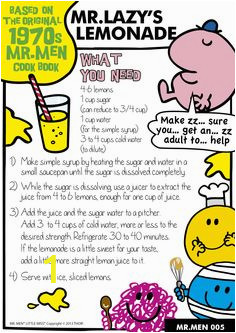 BASED ON
THE ORIGINAL
1970s
MR.MEN
COOK BOOK
MR.LAZY'S
LEMONADE
WHAT
YOU NEED
4-6 lemons
1 cup sugar
(can reduce to 3/4 cup)
1 cup water
(for the simple syrup)
3 to 4 cups cold water
(to dilute)
Make zz... sure
you... get an... zz
adult to... help
1) Make simple syrup by heating the sugar and water in a
small saucepan until the sugar is dissolved completely.
2) While the sugar is dissolving, use a juicer to extract the
juice from 4 to 6 lemons, enough for one cup of juice.
3) Add the juice and the sugar water to a pitcher.
Add 3 to 4 cups of cold water, more or less to the
desired strength. Refrigerate 30 to 40 minutes.
If the lemonade is a little sweet for your taste,
add a little more straight lemon juice to it.
4) Serve with ice, sliced lemons.
MR.MEN 005